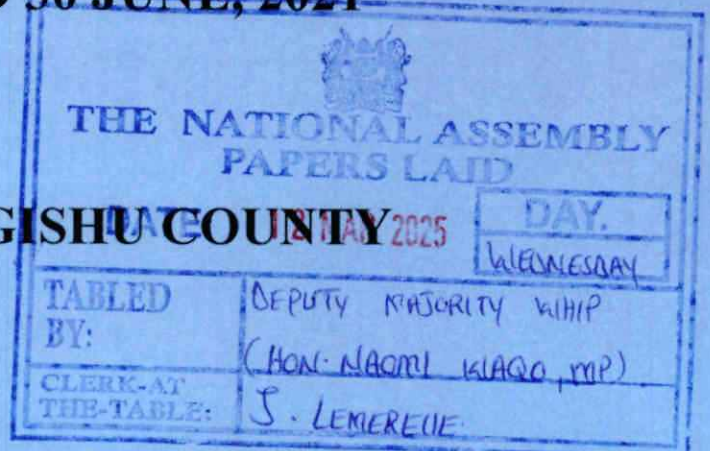 30 JUNE, 2021
THE NATIONAL ASSEMBLY
PAPERS LAID
GISHU COUNTY
DATE 12 MAR 2025
DAY.
WEDNESDAY
TABLED BY:
DEPUTY MAJORITY WHIP
(HON. NAOMI WAQO, MP)
CLERK-AT THE-TABLE:
J. LEMERELLE